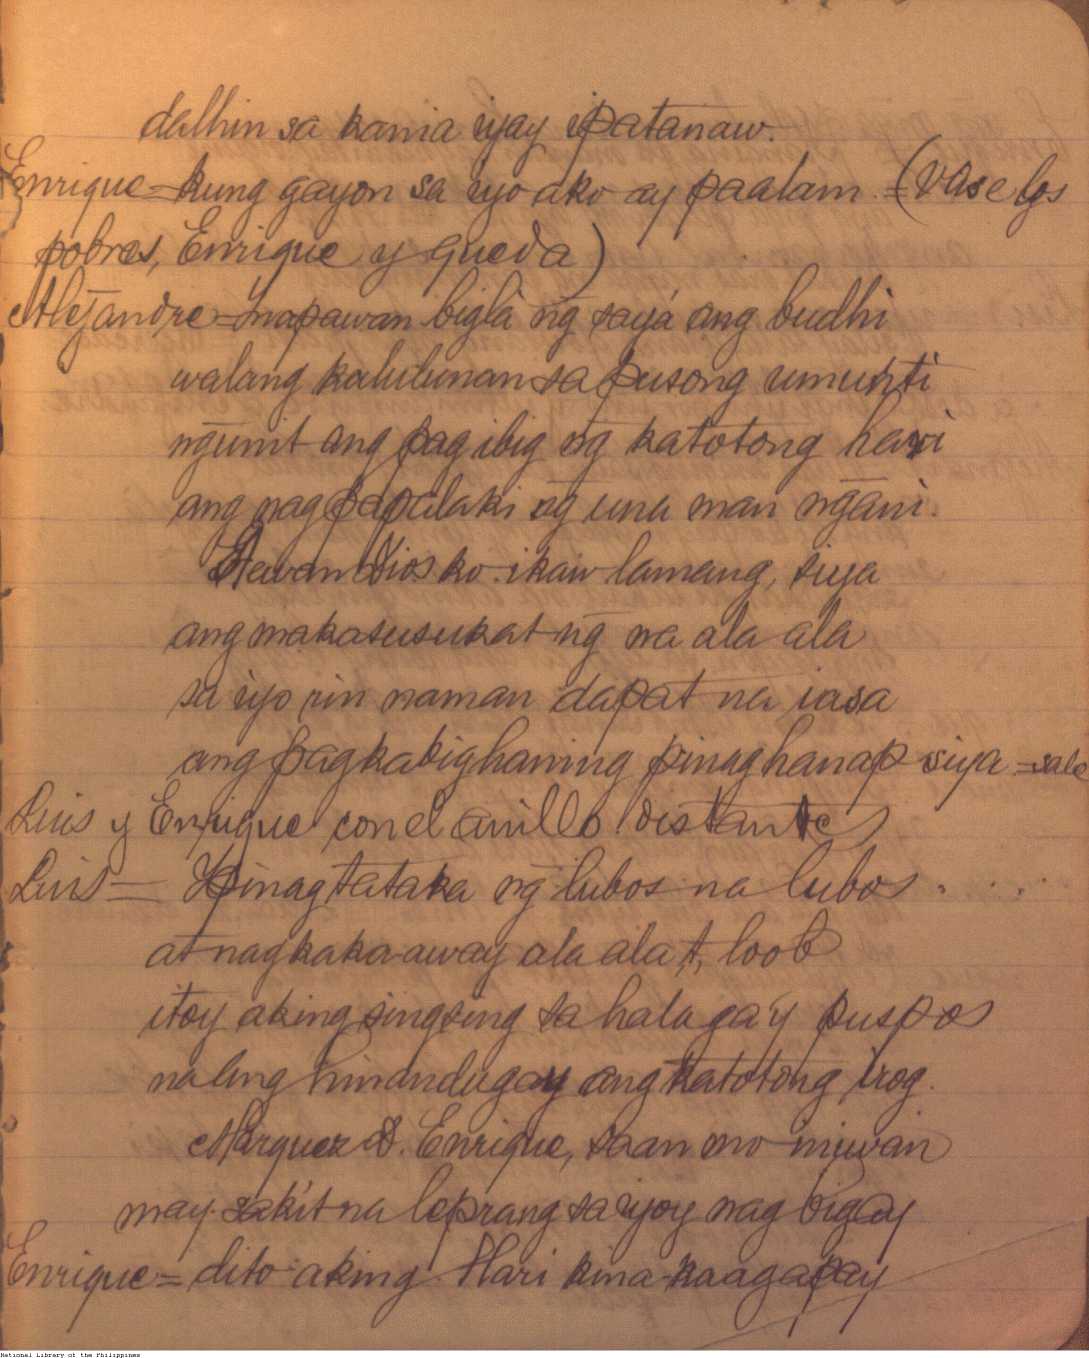 dalhin sa kania iyay ipatanaw.
Enrique = kung gayon sa iyo ako ay paalam. = (Vase los
pobres, Enrique y queda)
Alejandre = napawan biglâ ng̃ sayá ang budhi
walang kalulunan sa pusong umunti
ng̃unit ang pag ibig ng̃ katotong hari
ang nagpapalaki ng̃ una man ng̃ani.
Aewan Dios ko ikaw lamang, siya
ang makasusukat ng̃ na ala ala
sa iyo rin naman dapat na iasa
ang pagkabighaning pinaghanap siya = sale
Luis y Enrique con el anillo distantes
Luis = Hinagtataka ng̃ lubos na lubos . . . .
at nagkaka-away ala ala,t, loob
itoy aking singsing sa halaga'y puspos
na ang hinandugay ang katotong irog.
Marquez D. Enrique, saan mo iniwan
may sakit na leprang sa iyoy nag bigay
Enrique = dito aking Hari kina-kaagapay
National Library of the Philippines